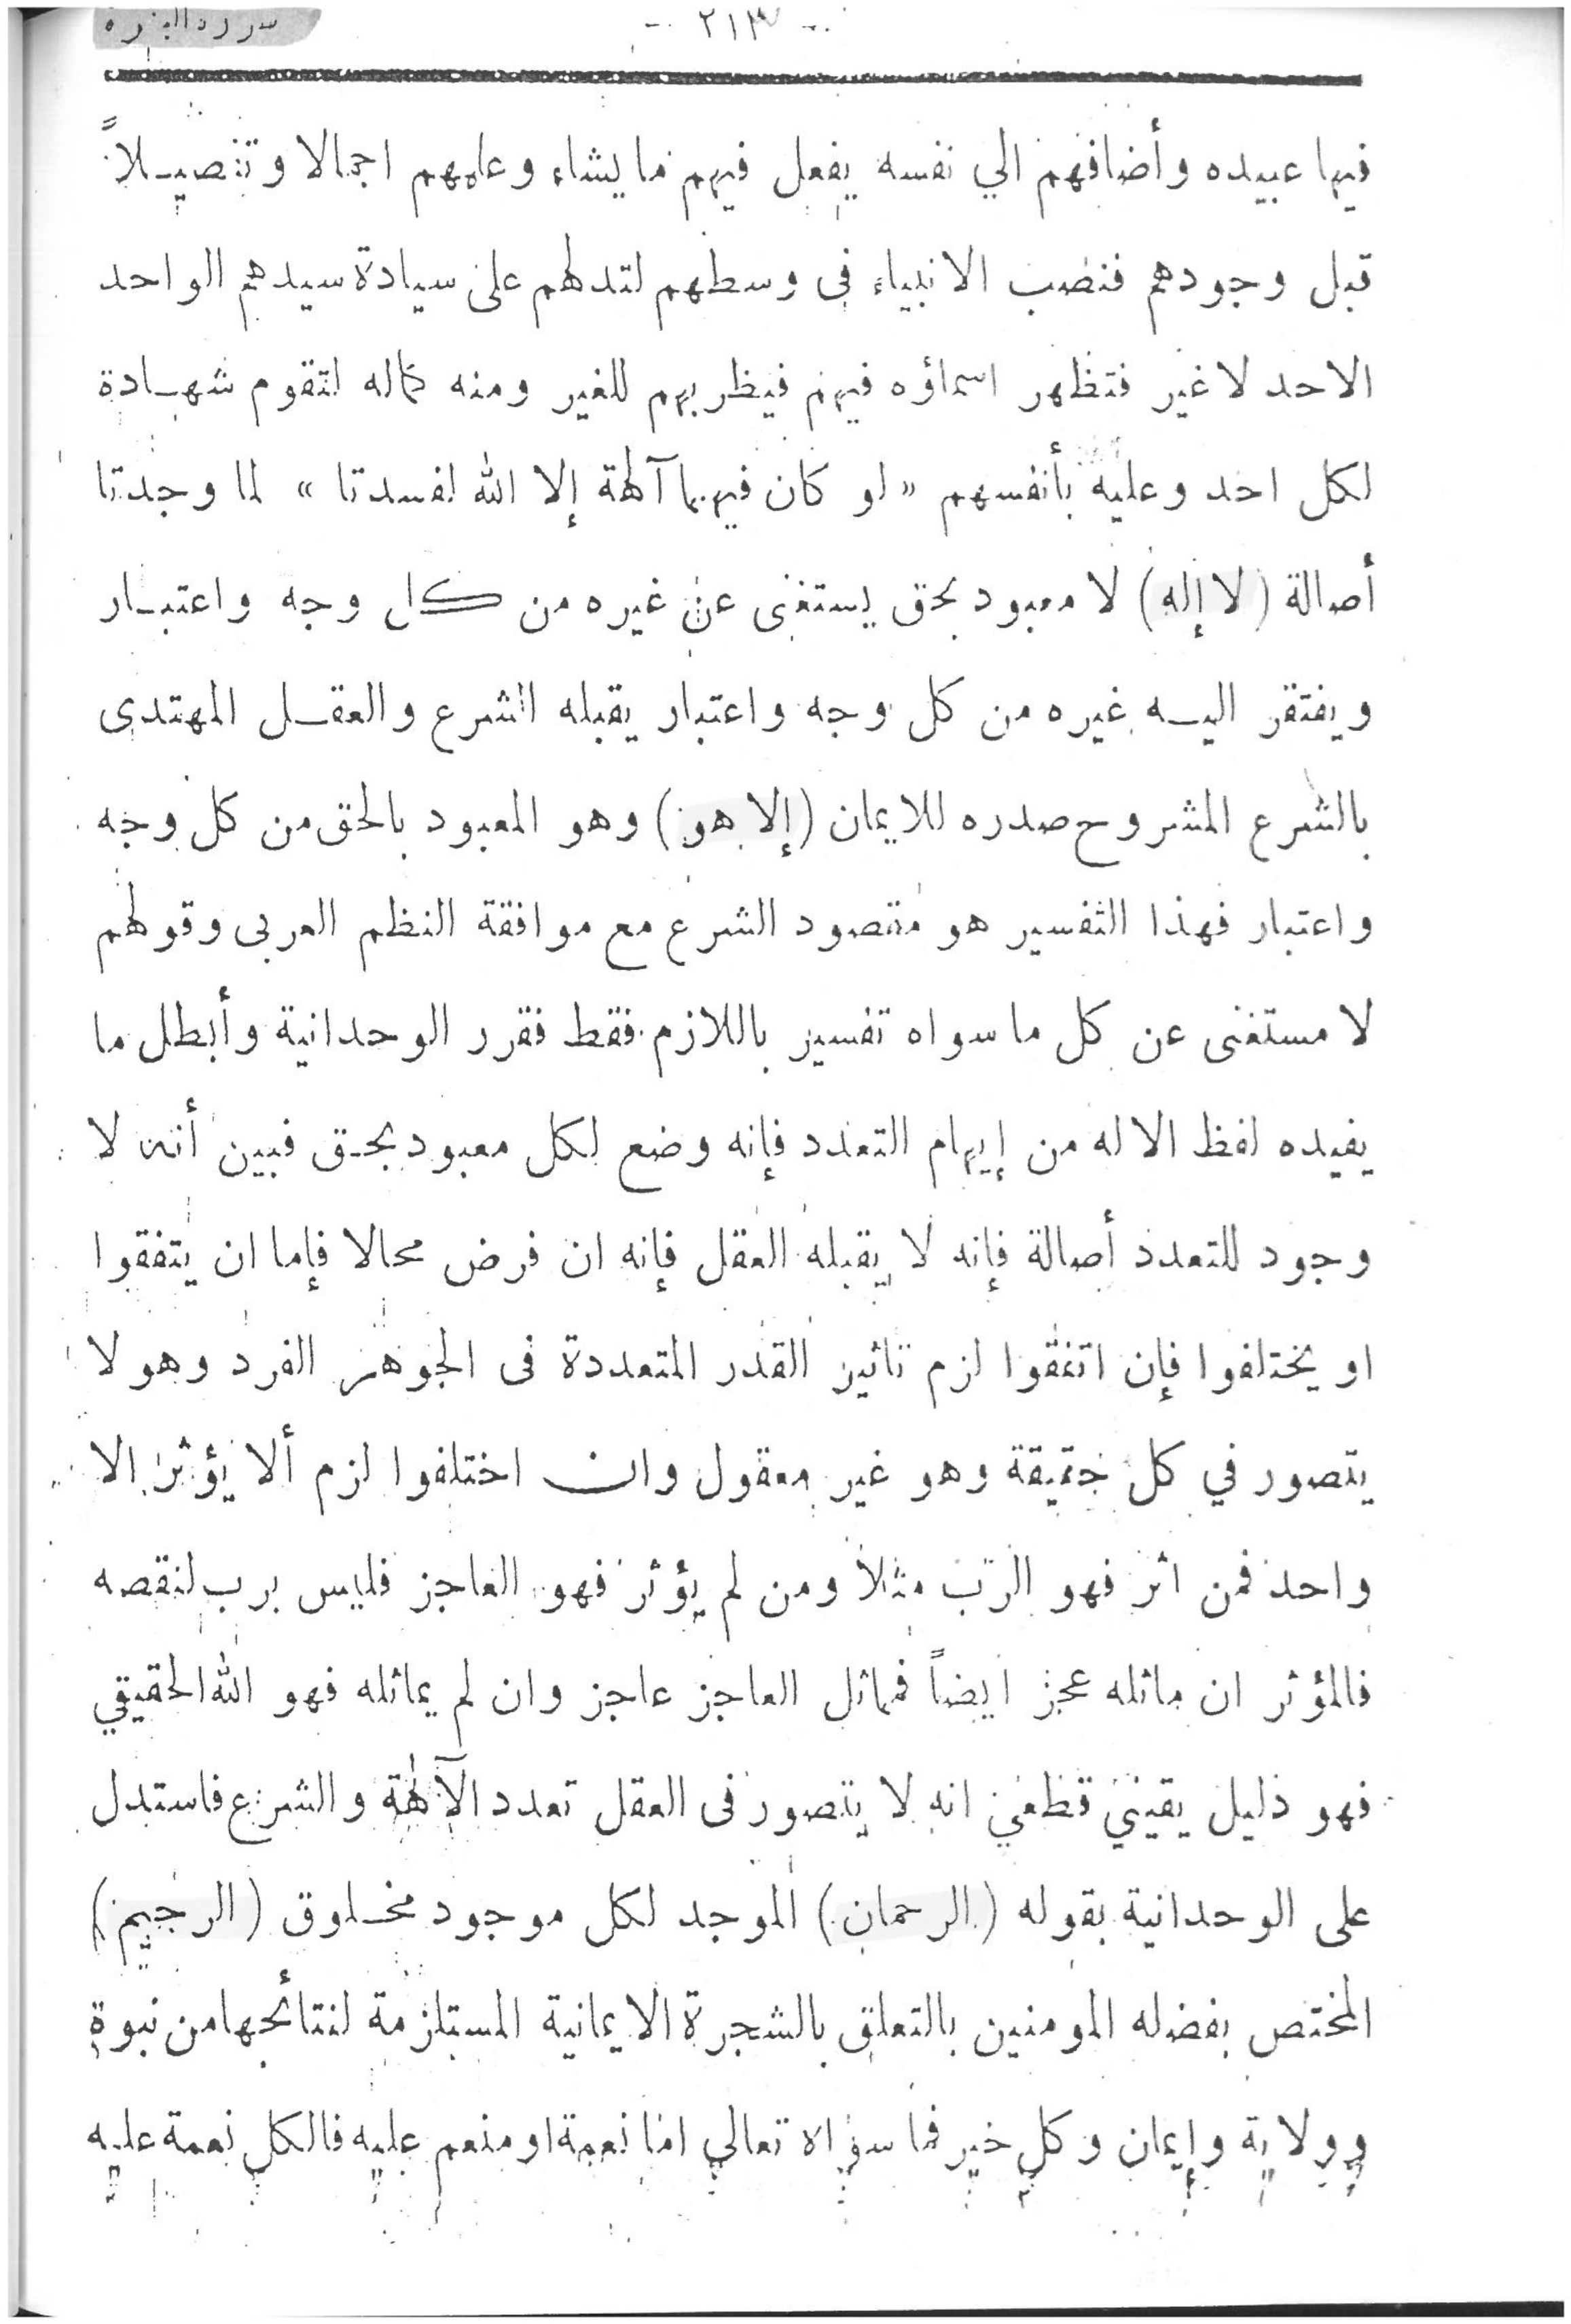 سورة البقرة
- ٢١٣ -
فيها عبيده وأضافهم الي نفسه يفعل فيهم ما يشاء وعلمهم اجمالا وتفصيلاً
قبل وجودهم فنصب الانبياء فى وسطهم لتدلهم على سيادة سيدهم الواحد
الاحد لا غير فتظهر اسماؤه فيهم فيظر بهم للغير ومنه كماله لتقوم شهادة
لكل احد وعليه بأنفسهم « لو كان فيهما آلهة إلا الله لفسدتا » لما وجدتا
أصالة (لا إله) لا معبود بحق يستغنى عن غيره من كل وجه واعتبار
ويفتقر اليه غيره من كل وجه واعتبار يقبله الشرع والعقل المهتدى
بالشرع المشروح صدره للايمان (إلا هو) وهو المعبود بالحق من كل وجه
واعتبار فهذا التفسير هو مقصود الشرع مع موافقة النظم العربى وقولهم
لا مستغنى عن كل ما سواه تفسير باللازم فقط فقرر الوحدانية وأبطل ما
يفيده لفظ الاله من إيهام التعدد فإنه وضع لكل معبود بحق فبين أنه لا
وجود للتعدد أصالة فإنه لا يقبله العقل فإنه ان فرض محالا فإما ان يتفقوا
او يختلفوا فإن اتفقوا لزم تاثير القدر المتعددة فى الجوهر الفرد وهو لا
يتصور في كل حقيقة وهو غير معقول وان اختلفوا لزم ألا يؤثر الا
واحد فمن اثر فهو الرب مثلا ومن لم يؤثر فهو العاجز فليس برب لنقصه
فالمؤثر ان ماثله عجز ايضاً فمماثل العاجز عاجز وان لم يماثله فهو الله الحقيقي
فهو دليل يقيني قطعي انه لا يتصور فى العقل تعدد الآلهة والشرع فاستدل
على الوحدانية بقوله (الرحمان) الموجد لكل موجود مخلوق (الرحيم)
المختص بفضله المومنين بالتعلق بالشجرة الايمانية المستلزمة لنتائجها من نبوة
وولاية وإيمان وكل خير فما سواه تعالي اما نعمة او منعم عليه فالكل نعمة عليه